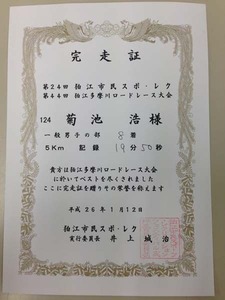 完走証
第24回 狛江市民スポ・レク
第44回 狛江多摩川ロードレース大会
124 菊池 浩様
一般男子の部 8着
5Km 記録 19分50秒
貴方は狛江多摩川ロードレース大会
に於いてベストを尽くされました
ここに完走証を贈りその栄誉を称えます
平成26年1月12日
狛江市民スポ・レク
実行委員長 井上城治